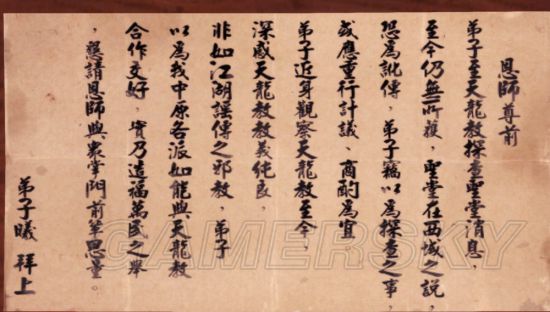 恩師尊前
弟子至天龍教探查聖堂消息，
至今仍無所獲，聖堂在西域之說，
恐為訛傳，弟子竊以為探查之事，
或應重行計議、商酌為宜
弟子近身觀察天龍教至今，
深感天龍教教義純良，
非如江湖謠傳之邪教，弟子
以為我中原各派如能與天龍教
合作交好，實乃造福萬民之舉
，懇請恩師與眾掌門前輩思量。
弟子曦 拜上
GAMERSKY